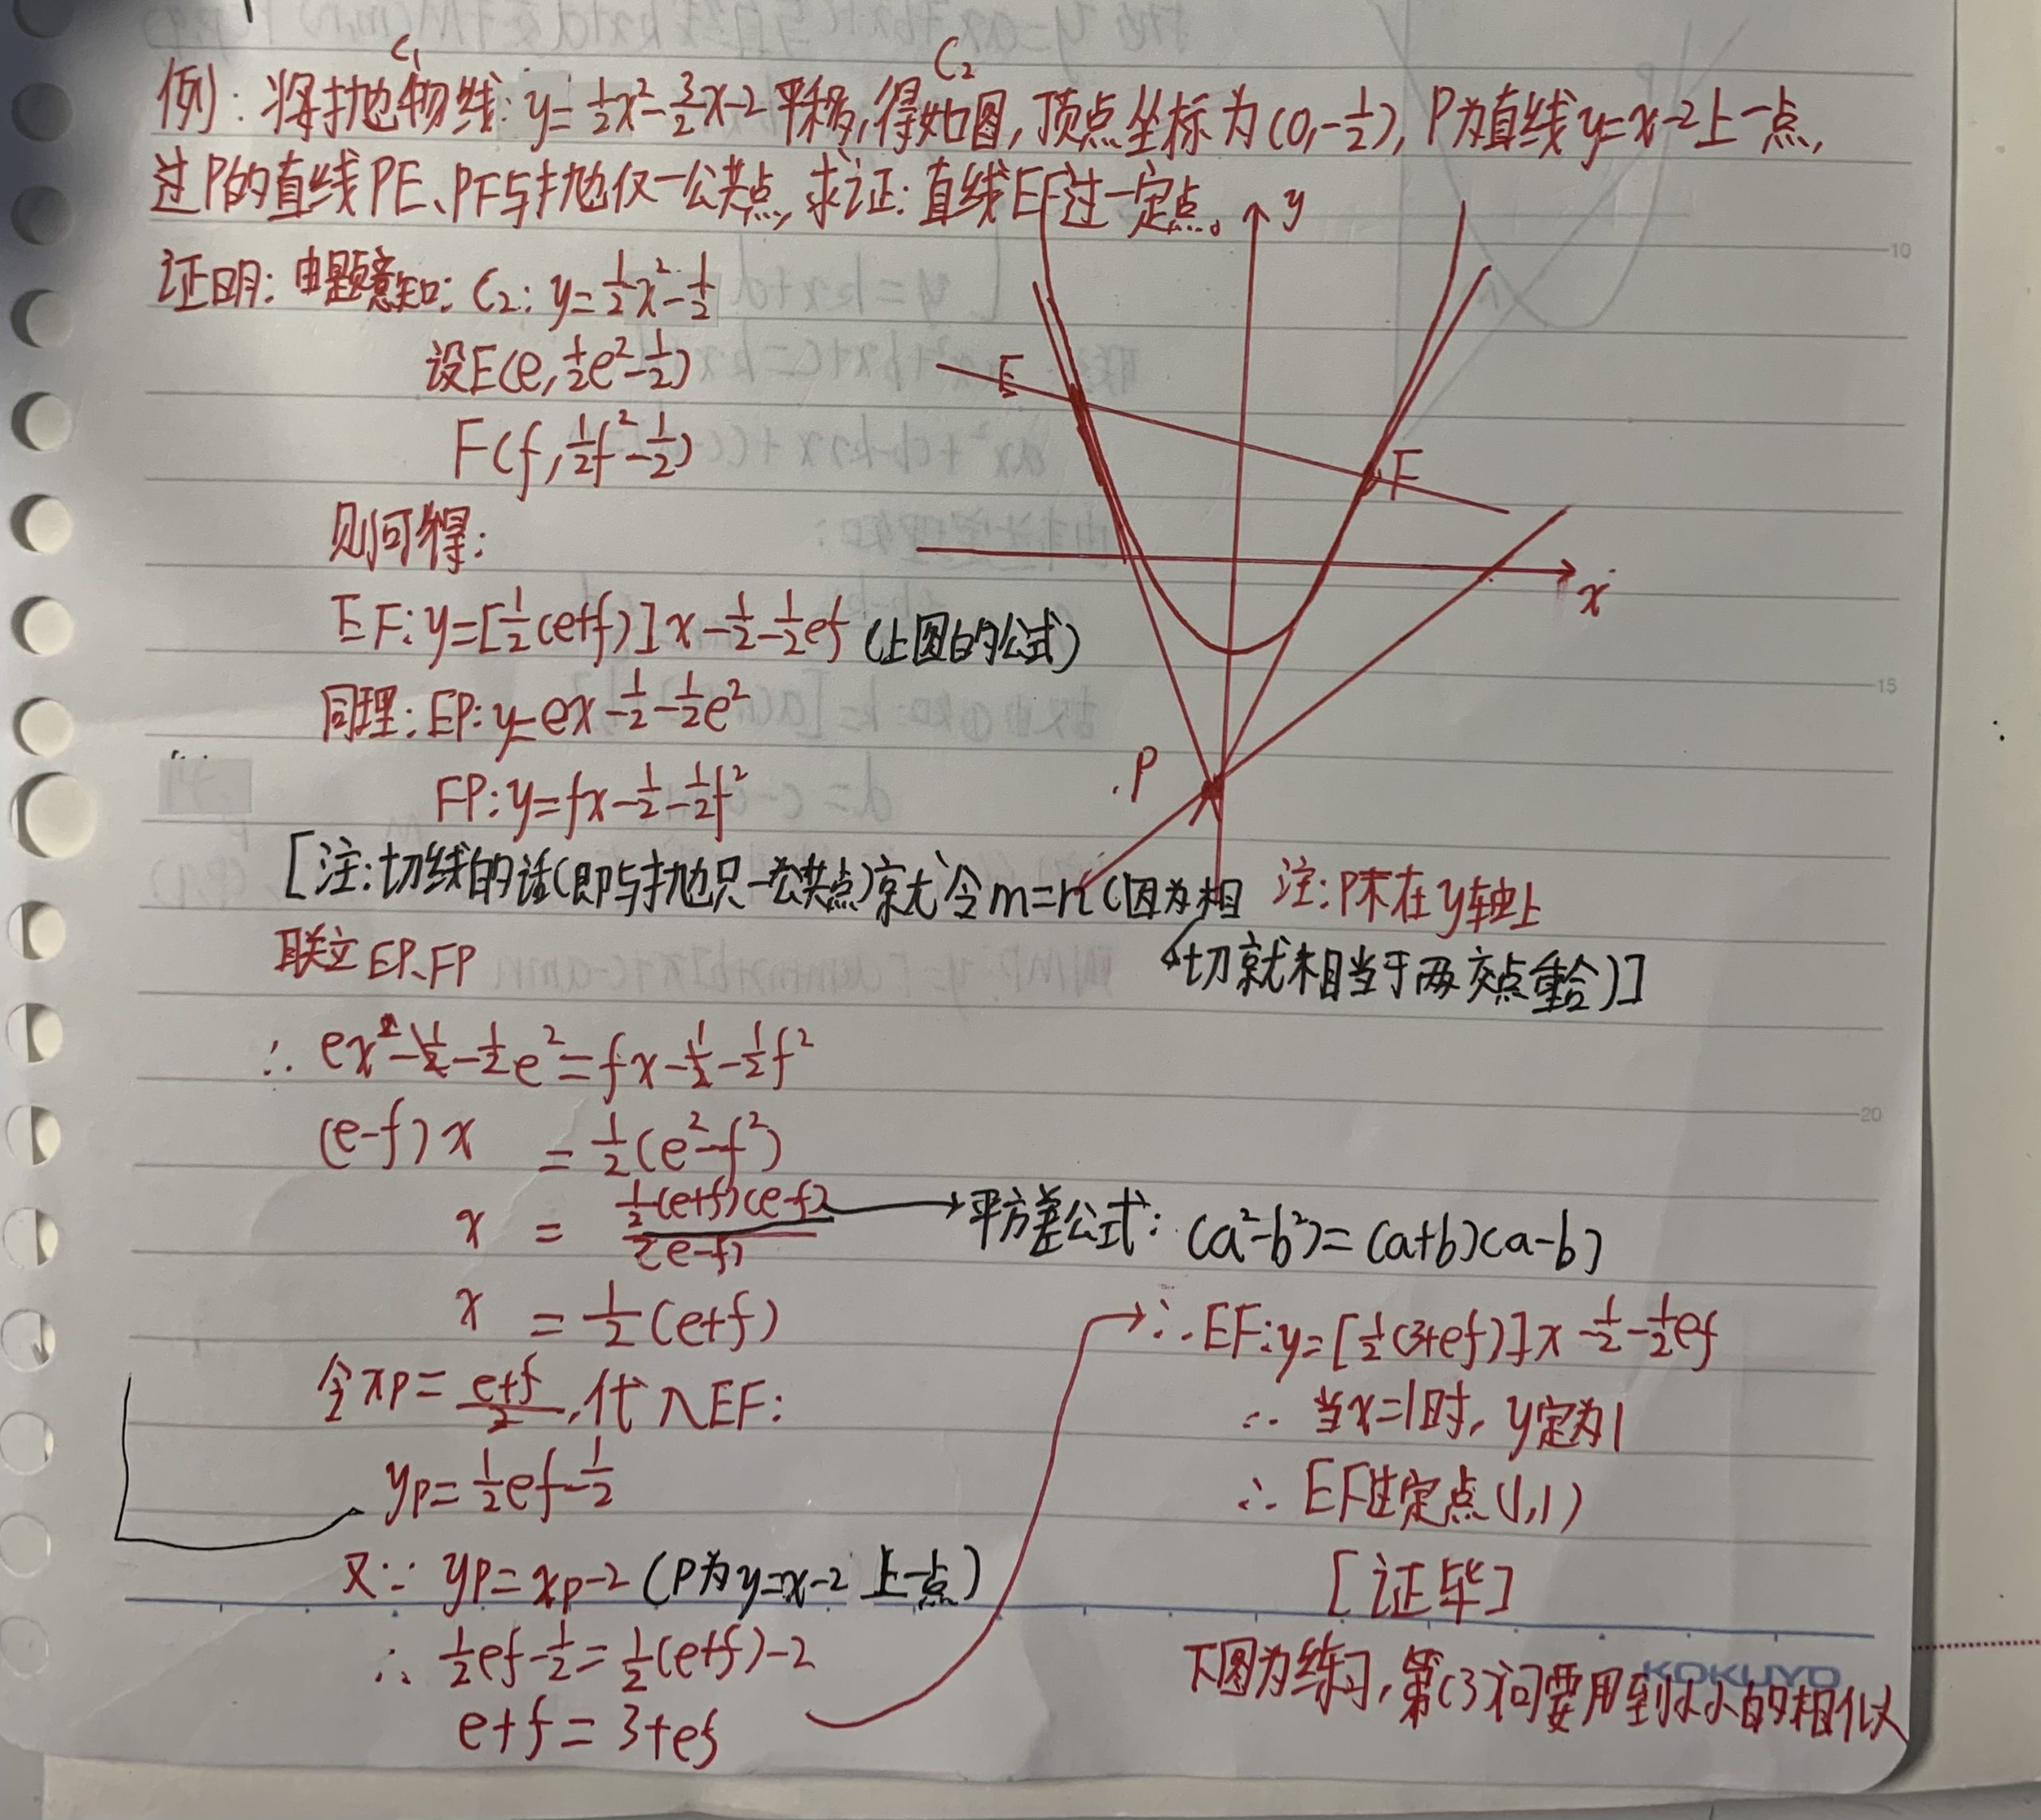 C₁
C₂
例：将抛物线：y=½x²-3/2x-2平移，得如图，顶点坐标为(0,-½)，P为直线y=x-2上一点，
过P的直线PE、PF与抛仅一公共点，求证：直线EF过一定点。
y
证明：由题意知：C₂：y=½x²-½
设E(e,½e²-½)
E
F(f,½f²-½)
F
则可得：
x
EF：y=[½(e+f)]x-½-½ef（上图的公式）
同理：EP：y=ex-½-½e²
.P
FP：y=fx-½-½f²
[注：切线的话(即与抛只一公共点)就令m=n(因为相
切就相当于两交点重合)]
注：P不在y轴上
联立EP、FP
∴ ex-½-½e²=fx-½-½f²
(e-f)x = ½(e²-f²)
x = ½(e+f)(e-f)/(e-f) → 平方差公式：(a²-b²)=(a+b)(a-b)
x = ½(e+f)
令xp=(e+f)/2，代入EF：
yp=½ef-½
又∵ yp=xp-2（P为y=x-2上一点）
∴ ½ef-½=½(e+f)-2
e+f=3+ef
∴ EF：y=[½(3+ef)]x-½-½ef
∴ 当x=1时，y定为1
∴ EF过定点(1,1)
[证毕]
下图为练习，第(3)问要用到小小的相似
KOKUYO
10
15
20